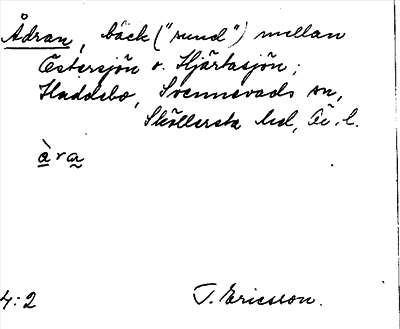 Ådran, bäck ("sund") mellan
Östersjön o. Hjärtasjön;
Haddebo, Svennevads sn,
Sköllersta hd, Ö. l.
4:2 T. Ericsson.